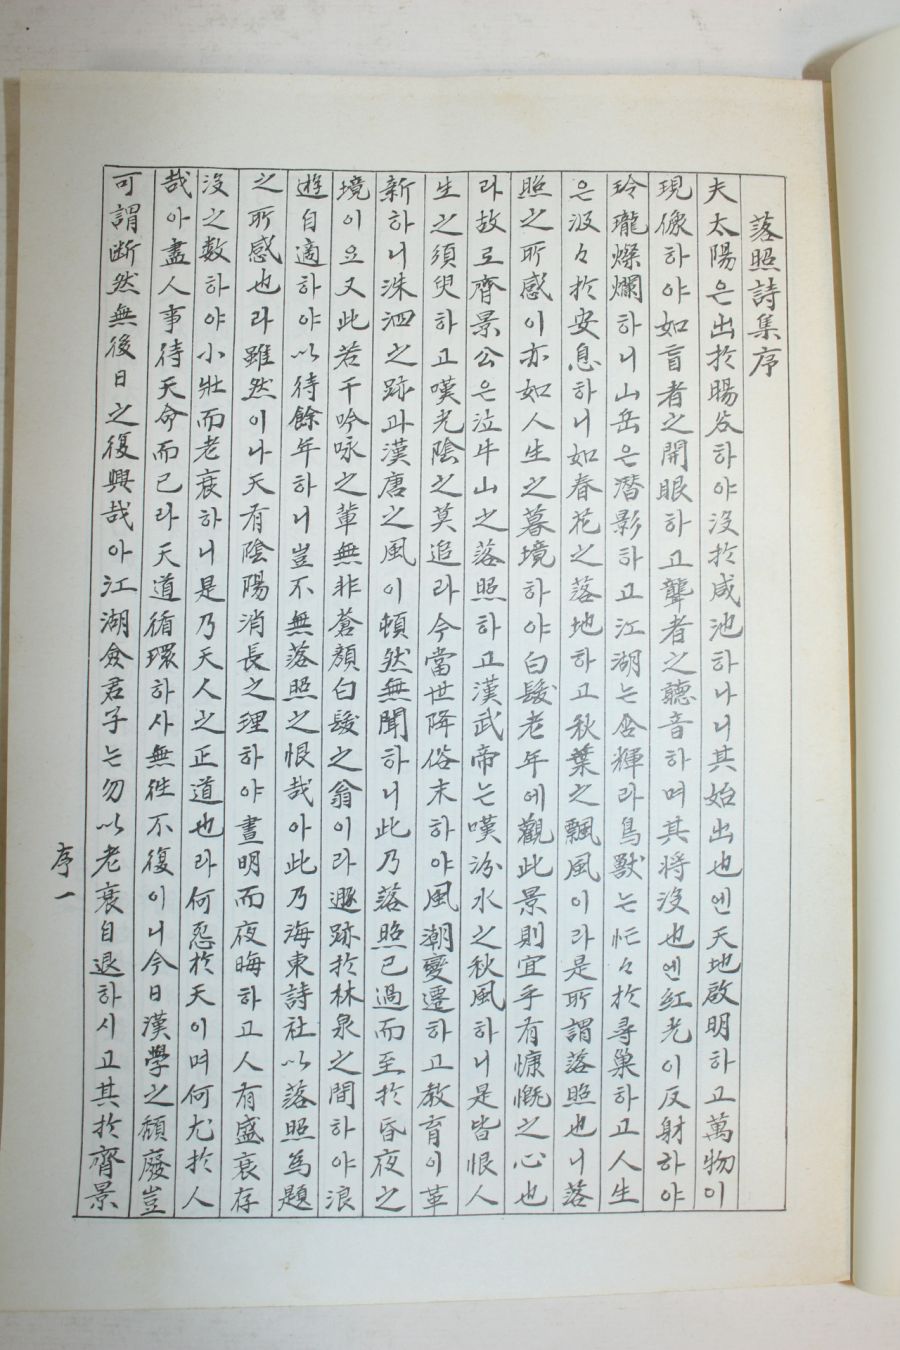 落照詩集序
夫太陽은出於暘谷하야沒於咸池하나니其始出也엔天地啟明하고萬物이
現像하야如盲者之開眼하고聾者之聽音하며其将沒也엔紅光이反射하야
玲瓏燦爛하니山岳은潛影하고江湖는含輝라鳥獸는忙々於尋巢하고人生
은汲々於安息하니如春花之落地하고秋葉之飄風이라是所謂落照也니落
照之所感이亦如人生之暮境하야白髮老年에觀此景則宜乎有慷慨之心也
라故로齊景公은泣牛山之落照하고漢武帝는嘆汾水之秋風하니是皆恨人
生之須臾하고嘆光陰之莫追라今當世降俗末하야風潮變遷하고教育이革
新하니洙泗之跡과漢唐之風이頓然無聞하니此乃落照已過而至於昏夜之
境이요又此若干吟咏之輩無非蒼顏白髮之翁이라遯跡於林泉之間하야浪
遊自適하야以待餘年하니豈不無落照之恨哉아此乃海東詩社以落照為題
之所感也라雖然이나天有陰陽消長之理하야晝明而夜晦하고人有盛衰存
沒之數하야小壯而老衰하니是乃天人之正道也라何怨於天이며何尤於人
哉아盡人事待天命而已라天道循環하사無往不復이니今日漢學之頹廢豈
可謂断然無後日之復興哉아江湖僉君子는勿以老衰自退하시고其於齊景
序一